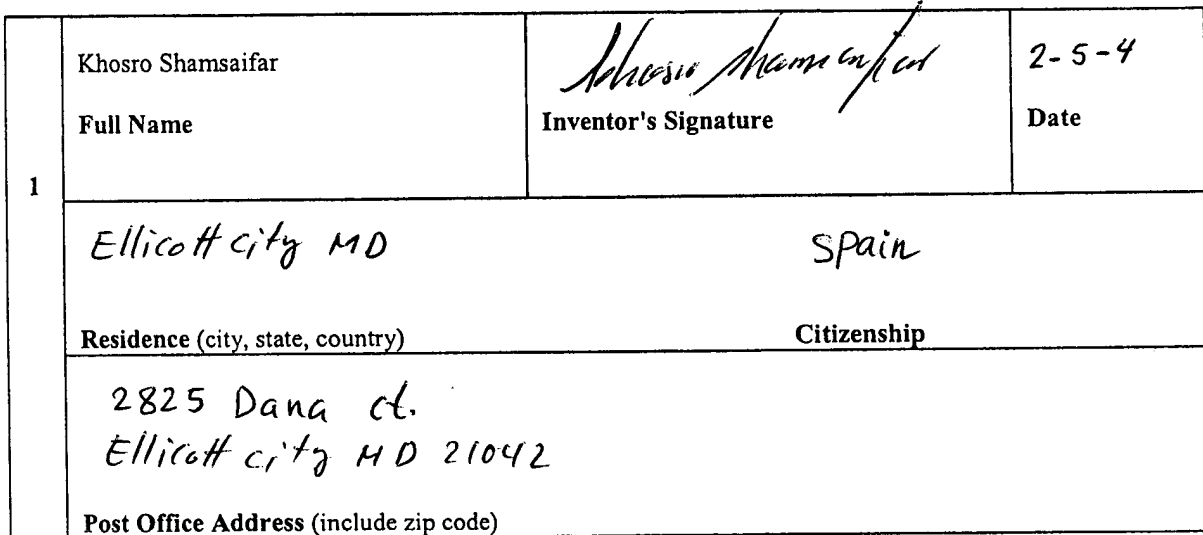 1
Khosro Shamsaifar
Full Name
Khosro Shamsaifar
Inventor's Signature
2-5-4
Date
Ellicott city MD
Residence (city, state, country)
Spain
Citizenship
2825 Dana ct.
Ellicott city MD 21042
Post Office Address (include zip code)